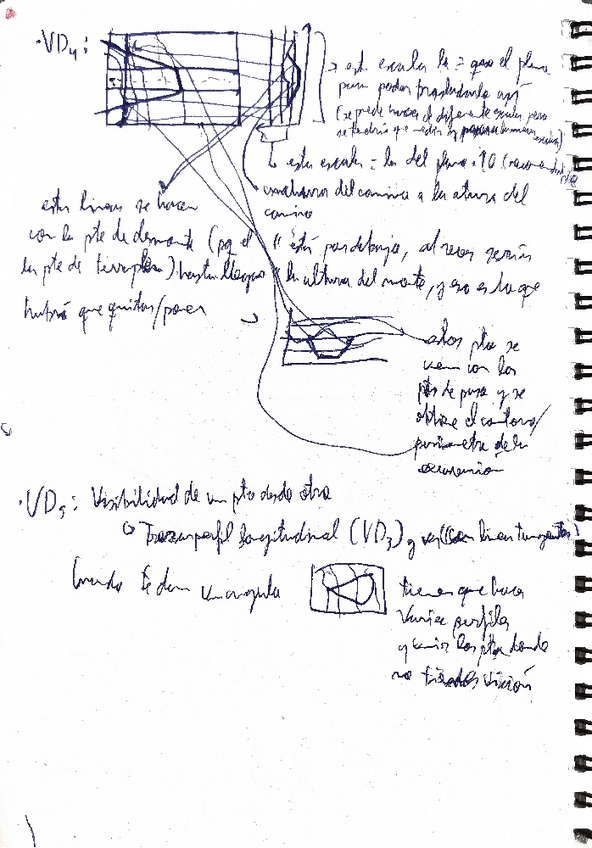 ·VD₄:
→ esta escala la = que el plano
para poder trasladarlo así
(se puede hacer el diferente escala pero
se tendría que medir y
↳ esta escala = la del plano · 10 (
del camino a la altura del
camino
estas líneas se hacen
con la pte de desmonte (pq el
la pte de terraplén) hasta llegar
"está por debajo, al revés serían
"la altura del monte, y eso es lo que
habrá que quitar/poner
estos ptos se
unen con los
ptos de paso y se
obtiene el contorno/
perímetro de la
excavación
·VD₅: Visibilidad de un pto desde otro
↳ Trazar perfil longitudinal (VD₃) y ver (con líneas tangentes)
Cuando te dan un ángulo
tienes que hacer
varios perfiles
y unir los ptos donde
no tienes visión